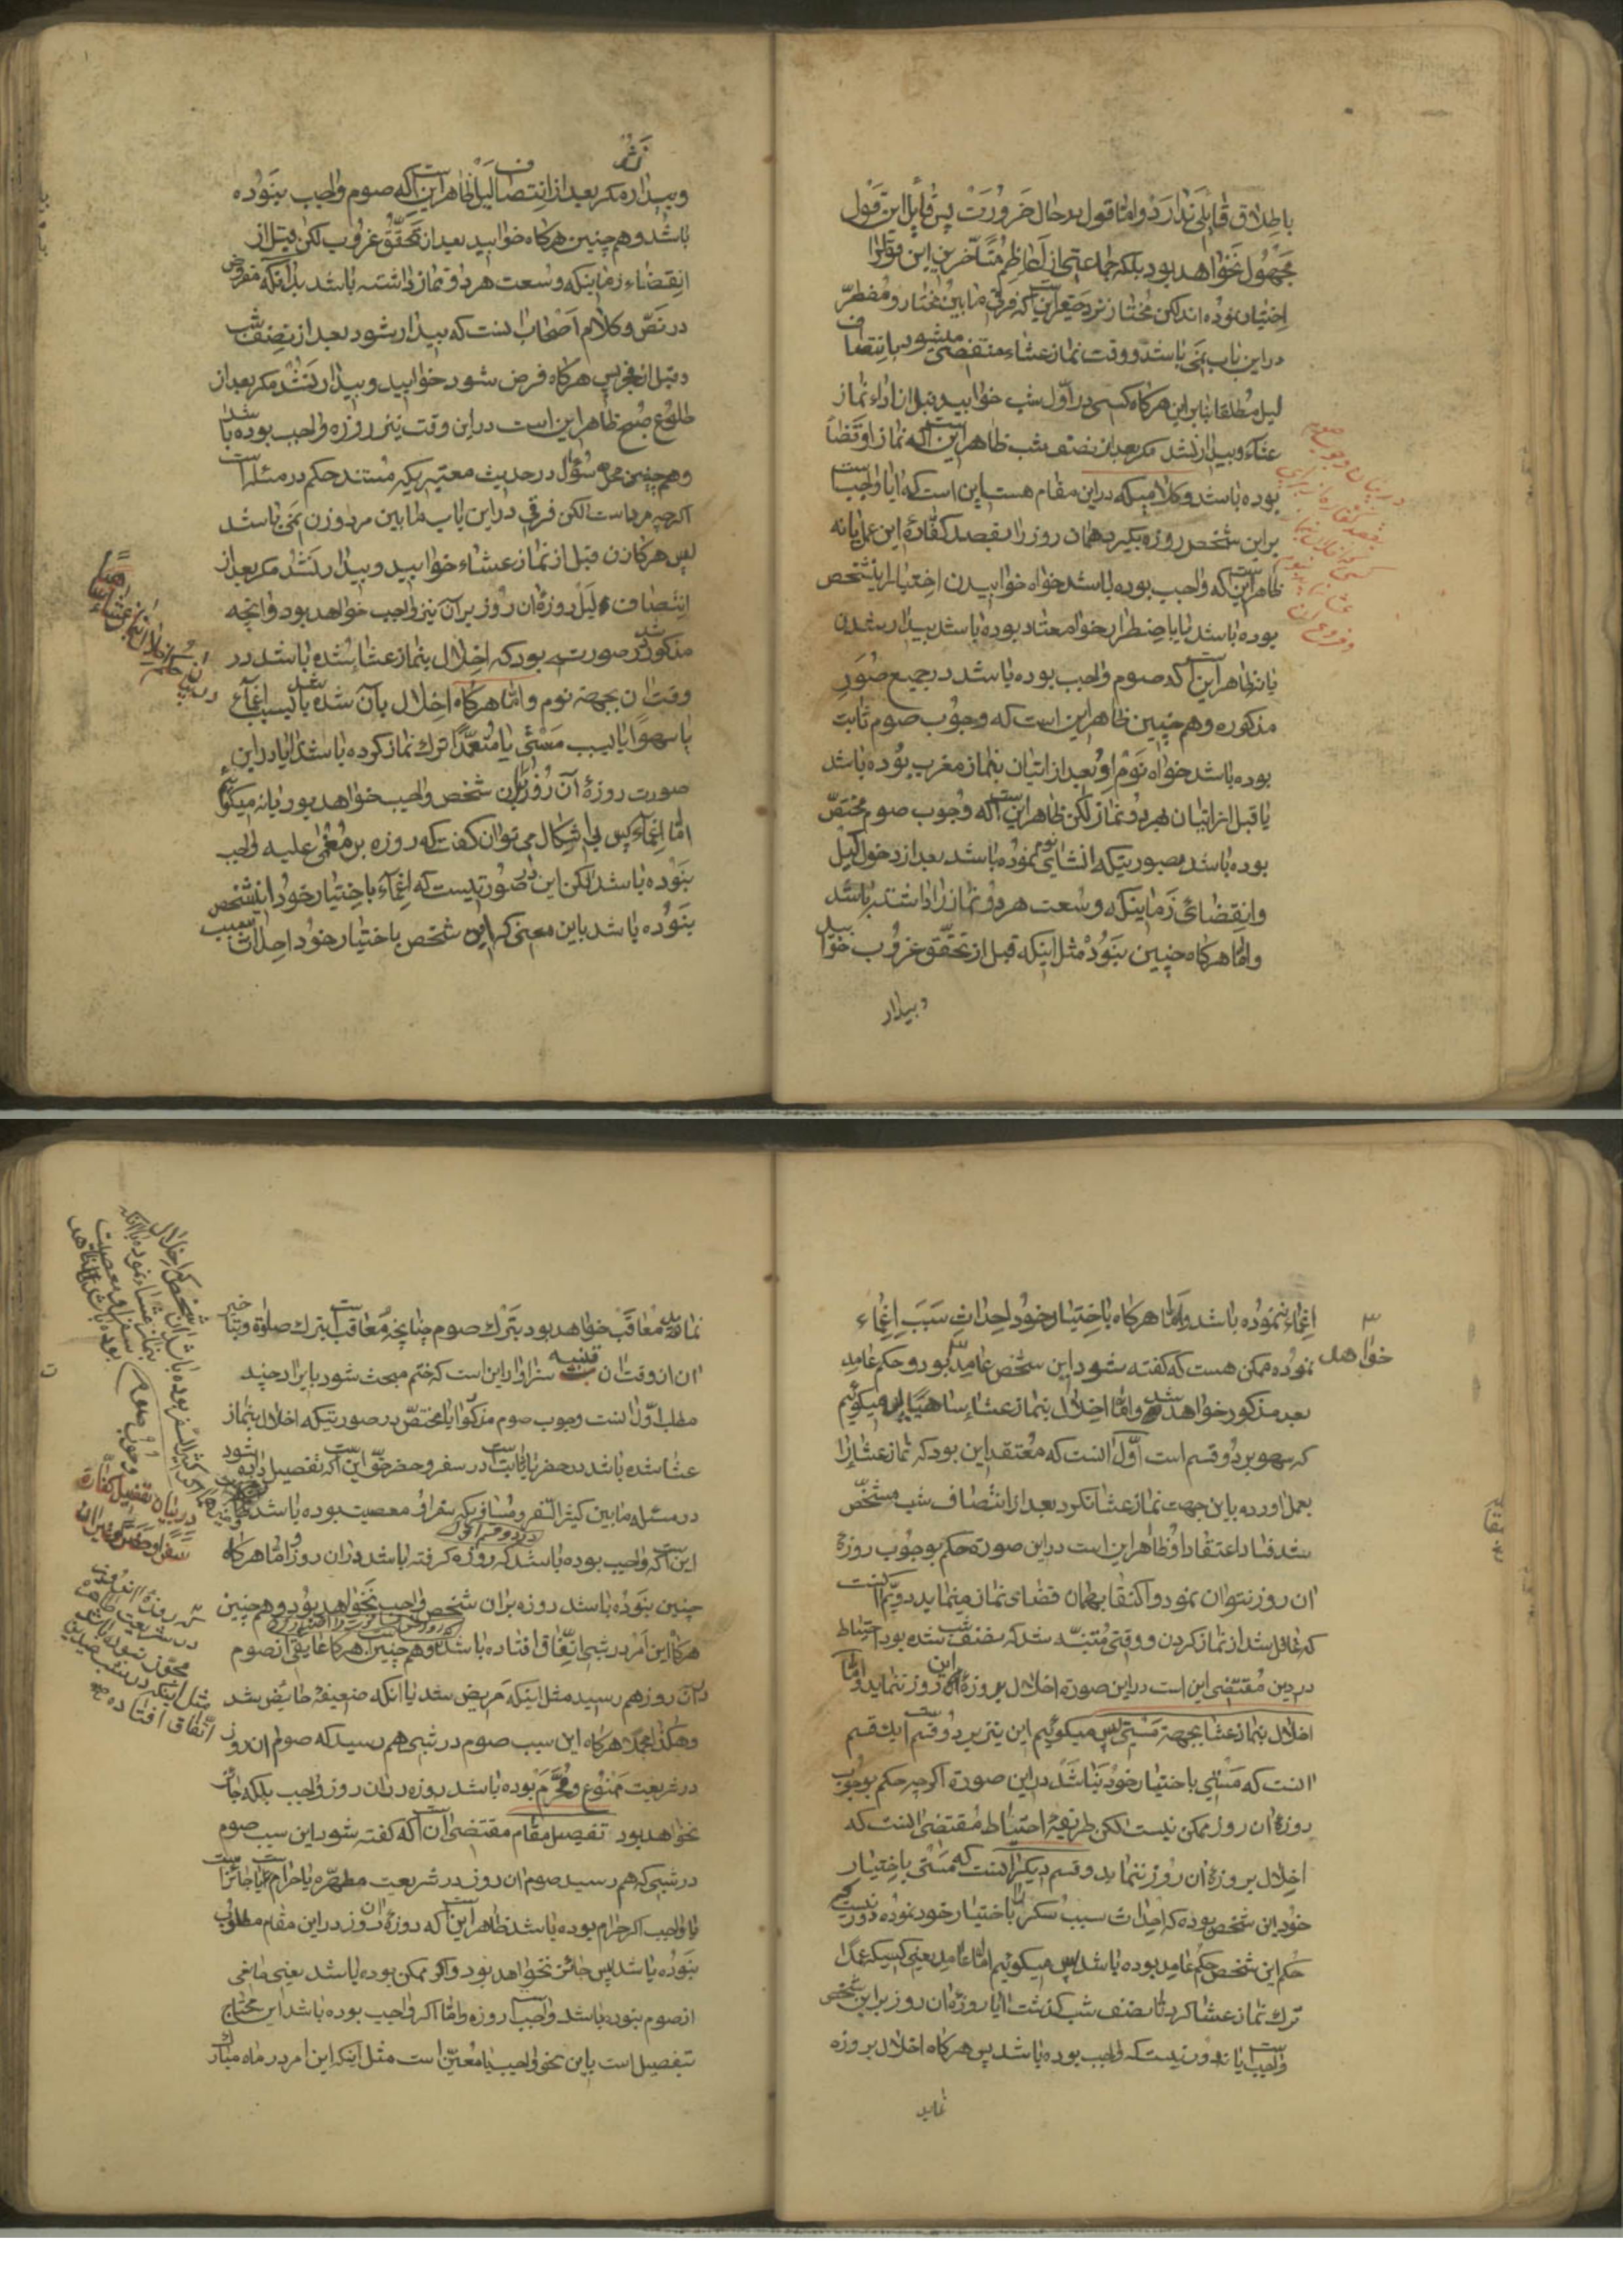 باطلاق قایلی ندارد و اما قول در حال ضرورت پس قایل این قول
مجهول نخواهد بود بلکه جماعتی از اعاظم متأخرین این قول را
اختیار نموده اند لکن مختار نزد حقیر این است که فرقی مابین مختار و مضطر
در این باب نمی باشد و وقت نماز عشاء منقضی میشود بانتصاف
لیل مطلقا بنابراین هرکاه کسی در اول شب خوابید قبل از اداء نماز
عشاء و بیدار نشد مکر بعد از نصف شب ظاهر این است که نماز او قضا
بوده باشد و کلامیکه در این مقام هست این است که ایا واجب است
بر این شخص روزه بکیرد همان روز را بقصد کفاره این عمل یا نه
ظاهر این است که واجب بوده باشد خواه خوابیدن اختیار اینشخص
بوده باشد یا باضطرار خواه معتاد بوده باشد ببیدار شدن
یا نه ظاهر این است که صوم واجب بوده باشد در جمیع صور
مذکوره و هم چنین ظاهر این است که وجوب صوم ثابت
بوده باشد خواه نوم او بعد از اتیان بنماز مغرب بوده باشد
یا قبل از اتیان بهر دو نماز لکن ظاهر این است که وجوب صوم مختص
بوده باشد بصورتیکه انشای نوم نموده باشد بعد از دخول لیل
و انقضای زمانیکه وسعت هر دو نماز را داشته باشد
و اما هرکاه چنین نبود مثل اینکه قبل از تحقق غروب خوابید
و بیدار
در بیان وجوب صوم
بقصد کفاره از برای
کسی که اخلال بنماز
عشا
و فروع ان
و بیدار نشد مکر بعد از انتصاف لیل ظاهر این است که صوم واجب نبوده
باشد و هم چنین هرکاه خوابید بعد از تحقق غروب لکن قبل از
انقضاء زمانیکه وسعت هر دو نماز داشته باشد بلکه مفروض
در نص و کلام اصحاب انست که بیدار شود بعد از نصف شب
و قبل از فجر پس هرکاه فرض شود خوابید و بیدار نشد مکر بعد از
طلوع صبح ظاهر این است در این وقت نیز روزه واجب بوده باشد
و هم چنین محل سؤال در حدیث معتبریکه مستند حکم در مسئله است
اکرچه مرد است لکن فرقی در این باب مابین مرد و زن نمی باشد
پس هرکاه زن قبل از نماز عشاء خوابید و بیدار نشد مکر بعد از
انتصاف لیل روزه ان روز بر آن نیز واجب خواهد بود و انچه
مذکور شد در صورت بود که اخلال بنماز عشا شده باشد در
وقت ان بجهة نوم و اما هرکاه اخلال بآن شده باشد بسبب اغماء
یا سهوا یا بسبب مستی یا متعمدا ترک نماز کرده باشد ایا در این
صورت روزه آن روز بر این شخص واجب خواهد بود یا نه میکوئیم
اما اغماء پس بی اشکال می توان کفت که روزه بر مغمی علیه واجب
نبوده باشد لکن این در صورتیست که اغماء باختیار خود اینشخص
نبوده باشد باین معنی که این شخص باختیار خود احداث سبب
در بیان حکم اخلال بنماز عشاء ساهیا
اغماء ننموده باشد و اما هرکاه باختیار خود احداث سبب اغماء
نموده ممکن هست که کفته شود این شخص عامد بود و حکم عامد
خواهد
بعد مذکور خواهد شد و اما اخلال بنماز عشاء ساهیا پس میکوئیم
که سهو بر دو قسم است اول انست که معتقد این بود که نماز عشا را
بعمل اورده باین جهت نماز عشا نکرد بعد از انتصاف شب مشخص
شد فساد اعتقاد او ظاهر این است در این صورة حکم بوجوب روزه
ان روز نتوان نمود و اکتفا بهمان قضای نماز مینماید دویم انست
که غافل شد از نماز کردن و وقتی متنبه شد که نصف شب شده بود احتیاط
در دین مقتضی این است در این صورة اخلال بروزه این روز ننماید و اما
اخلال بنماز عشا بجهة مستی پس میکوئیم این نیز بر دو قسم است یک قسم
انست که مستی باختیار خود نباشد در این صورة اکرچه حکم بوجوب
روزه ان روز ممکن نیست لکن طریقه احتیاط مقتضی انست که
اخلال بروزه ان روز ننماید و قسم دیکر انست که مستی باختیار
خود این شخص بوده که احداث سبب سکر را باختیار خود نموده دور نیست که
حکم این شخص حکم عامد بوده باشد پس میکوئیم اما عامد یعنی کسیکه عمدا
ترک نماز عشا کرد تا نصف شب کذشت ایا روزه ان روز بر این شخص
واجب است یا نه دور نیست که واجب بوده باشد پس هرکاه اخلال بروزه
نماید
نماید معاقب خواهد بود بترک صوم چنانچه معاقب است بترک صلوة و بتاخیر
ان از وقت ان تنبیه سزاوار این است که ختم مبحث شود بایراد چند
مطلب اول انست وجوب صوم مذکور ایا مختص بصورتیکه اخلال بنماز
عشا شده باشد در حضر یا ثابت است در سفر و حضر حق این است که تفصیل داده شود
در مسئله مابین کثیر السفر و مسافریکه سفر او معصیت بوده باشد
این است که واجب بوده باشد که روزه کرفته باشد در ان روز و اما هرکاه
چنین نبوده باشد روزه بر ان شخص واجب نخواهد بود و هم چنین
هرکاه این امر در شب اتفاق افتاده باشد و هم چنین هرکاه عایقی از صوم
در آن روز هم رسید مثل اینکه مریض شد یا انکه ضعیفه حایض شد
و هکذا مجملا هرکاه این سبب صوم در شبی هم رسید که صوم ان روز
در شریعت ممنوع و محرم بوده باشد روزه در ان روز واجب بلکه جائز
نخواهد بود تفصیل مقام مقتضی ان است که کفته شود این سبب صوم
در شبی که هم رسید صوم ان روز در شریعت مطهره یا حرام است یا جائز است
یا واجب اکر حرام بوده باشد ظاهر این است که روزه ان روز در این مقام مطلوب
نبوده باشد پس جائز نخواهد بود و اکر ممکن بوده باشد یعنی مانعی
از صوم نبوده باشد واجب است روزه و اما اکر واجب بوده باشد این محتاج
بتفصیل است باین نحو واجب یا معین است مثل اینکه این امر در ماه مبارک
در بیان تفصیل کفاره
سفرا و حضرا و غیر ان
که روزه ان روز
در شریعت مطهره
مجوز نبوده باشد
مثل اینکه در شب عیدین
اتفاق افتاده